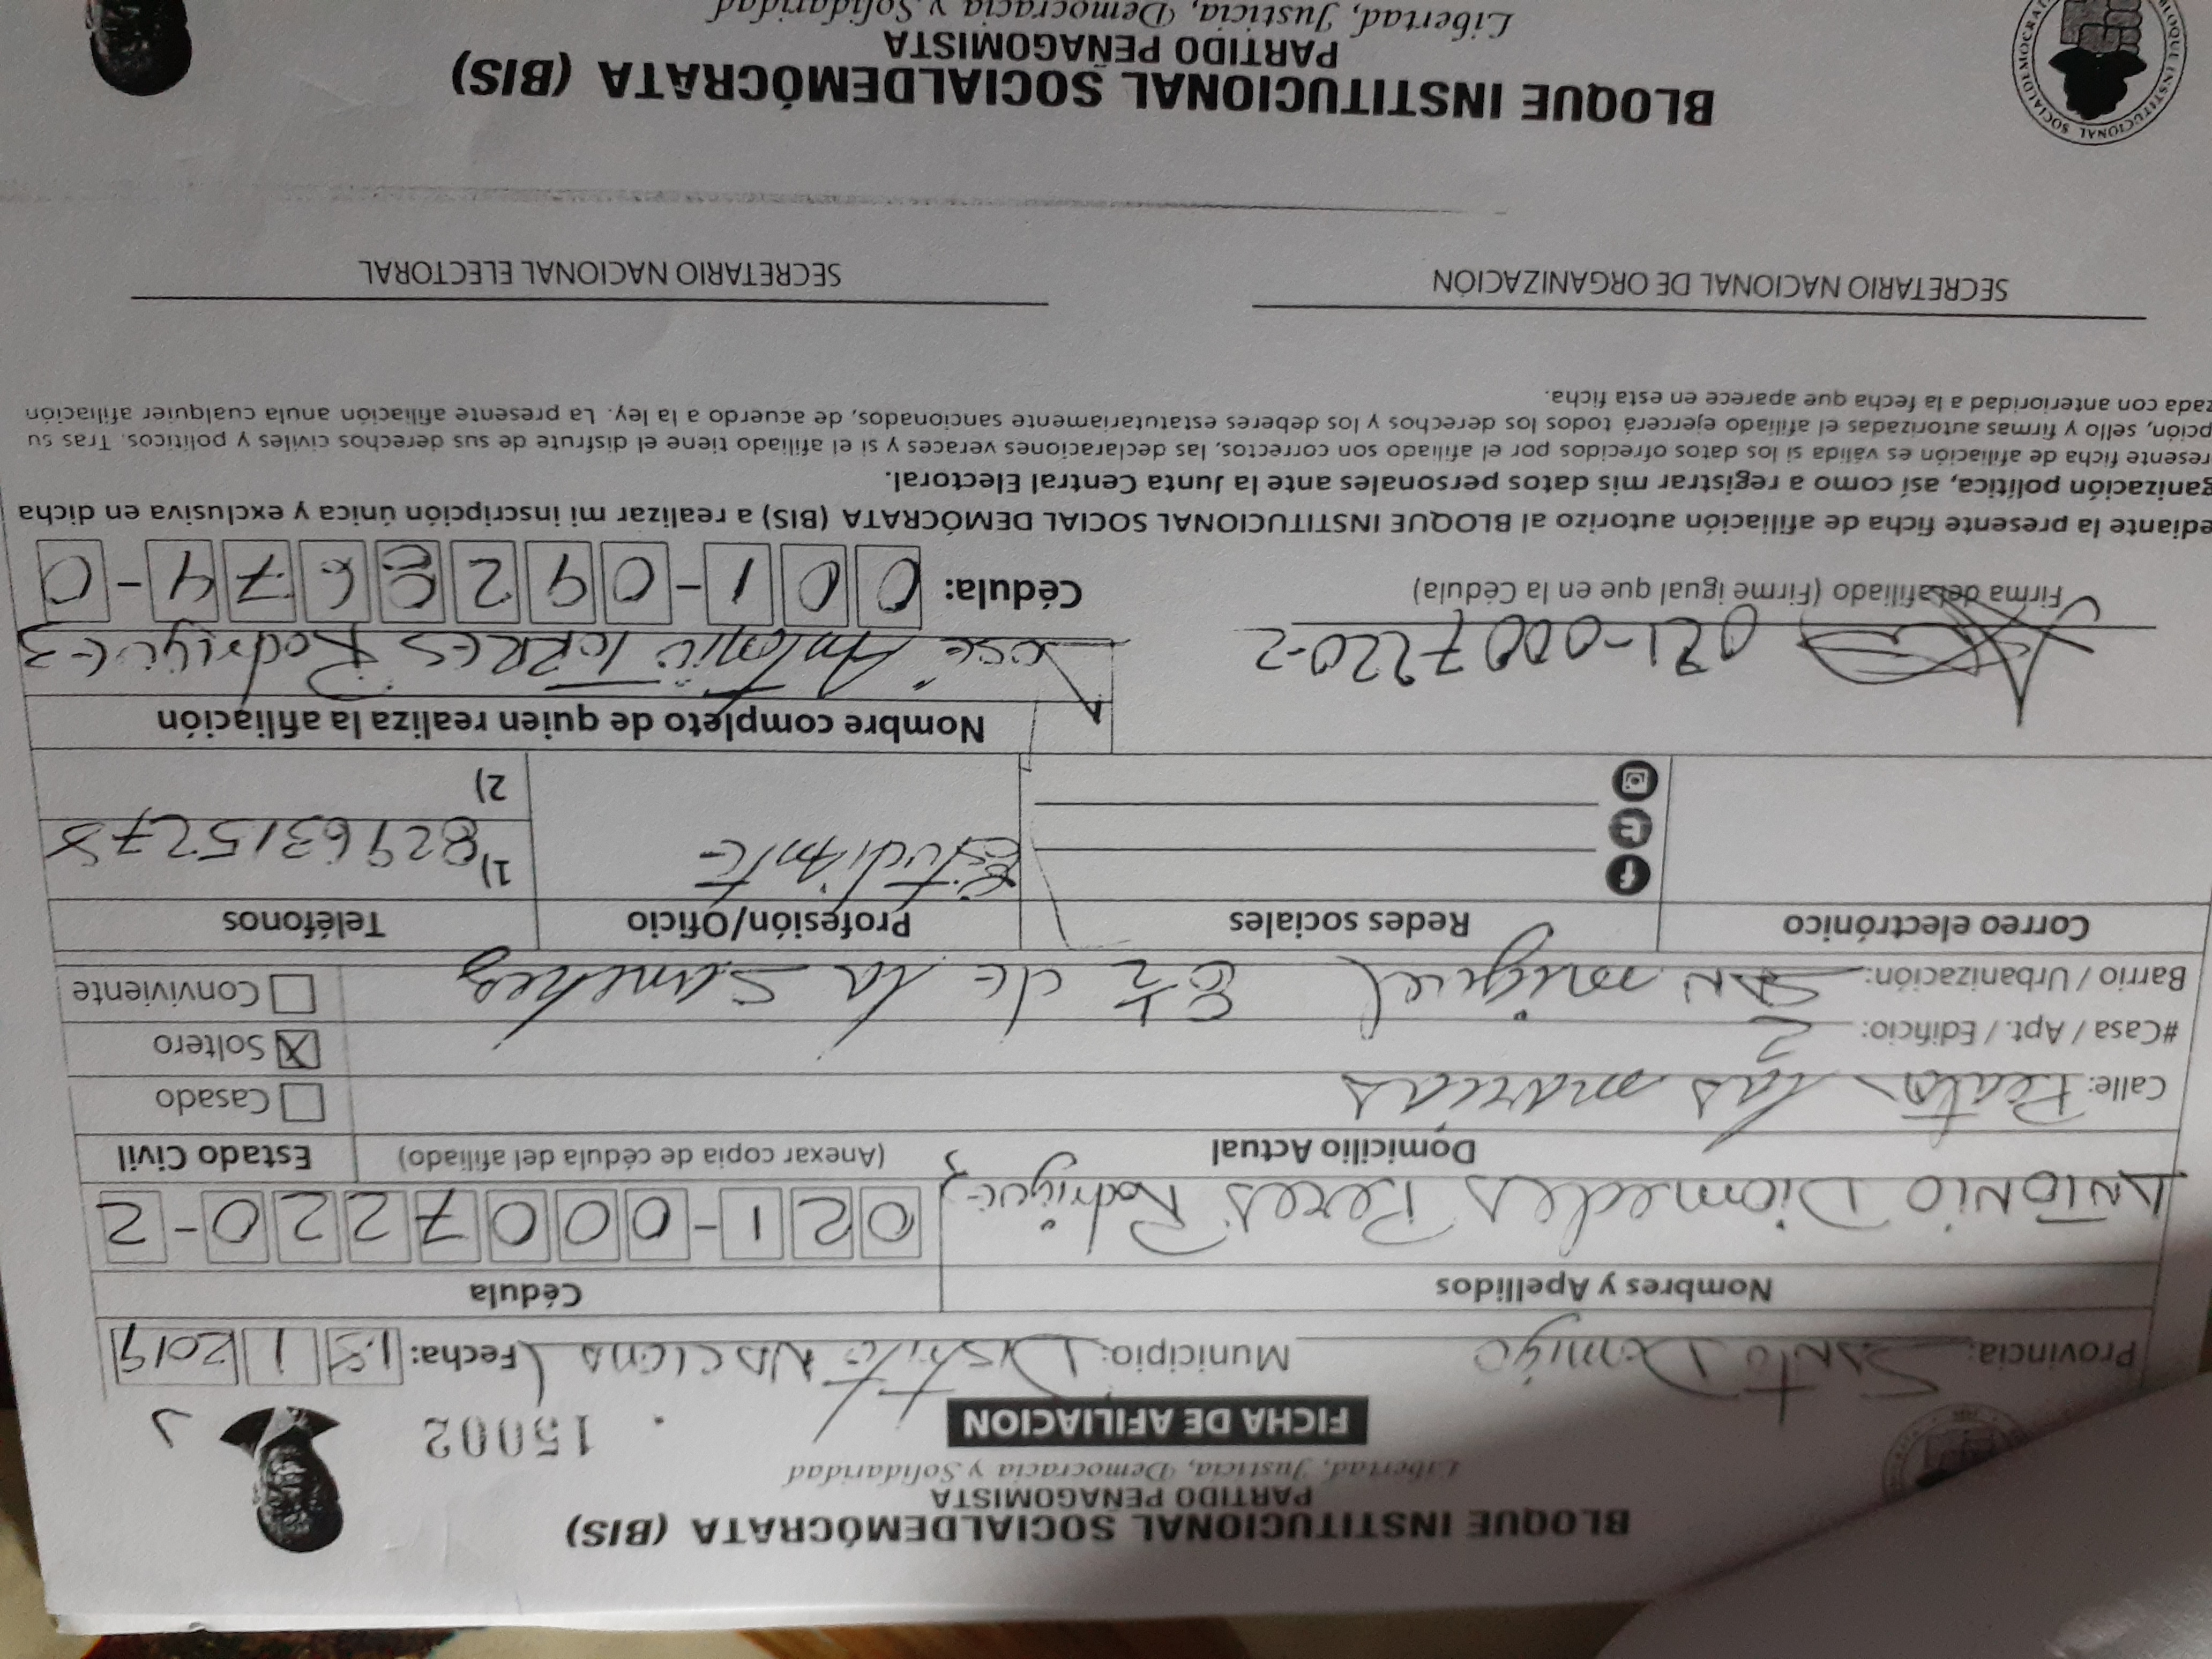 BLOQUE INSTITUCIONAL SOCIALDEMÓCRATA (BIS)
PARTIDO PEÑAGOMISTA
Libertad, Justicia, Democracia y Solidaridad
FICHA DE AFILIACION
15002
Provincia: SANTO Domigo Municipio: Distrito NACIONAL Fecha: 18 1 2019
Nombres y Apellidos Cédula
ANTONIO Diomedes Peres Rodriguez 021-0007220-2
Domicilio Actual (Anexar copia de cédula del afiliado) Estado Civil
Calle: Peaton las marias Casado
#Casa / Apt. / Edificio: 2 Soltero X
Barrio / Urbanización: SAN miguel de la Sanchez Conviviente
Correo electrónico Redes sociales Profesión/Oficio Teléfonos
Estudiante 1) 8296315278
2)
Nombre completo de quien realiza la afiliación
021-0007220-2 José Antonio TORRES Rodriguez
Firma del afiliado (Firme igual que en la Cédula) Cédula: 001-0928674-0
ediante la presente ficha de afiliación autorizo al BLOQUE INSTITUCIONAL SOCIAL DEMÓCRATA (BIS) a realizar mi inscripción única y exclusiva en dicha
ganización política, así como a registrar mis datos personales ante la Junta Central Electoral.
resente ficha de afiliación es válida si los datos ofrecidos por el afiliado son correctos, las declaraciones veraces y si el afiliado tiene el disfrute de sus derechos civiles y políticos. Tras su
pción, sello y firmas autorizadas el afiliado ejercerá todos los derechos y los deberes estatutariamente sancionados, de acuerdo a la ley. La presente afiliación anula cualquier afiliación
zada con anterioridad a la fecha que aparece en esta ficha.
SECRETARIO NACIONAL DE ORGANIZACIÓN SECRETARIO NACIONAL ELECTORAL
BLOQUE INSTITUCIONAL SOCIALDEMÓCRATA (BIS)
PARTIDO PEÑAGOMISTA
Libertad, Justicia, Democracia y Solidaridad
BLOQUE INSTITUCIONAL SOCIALDEMOCRATA